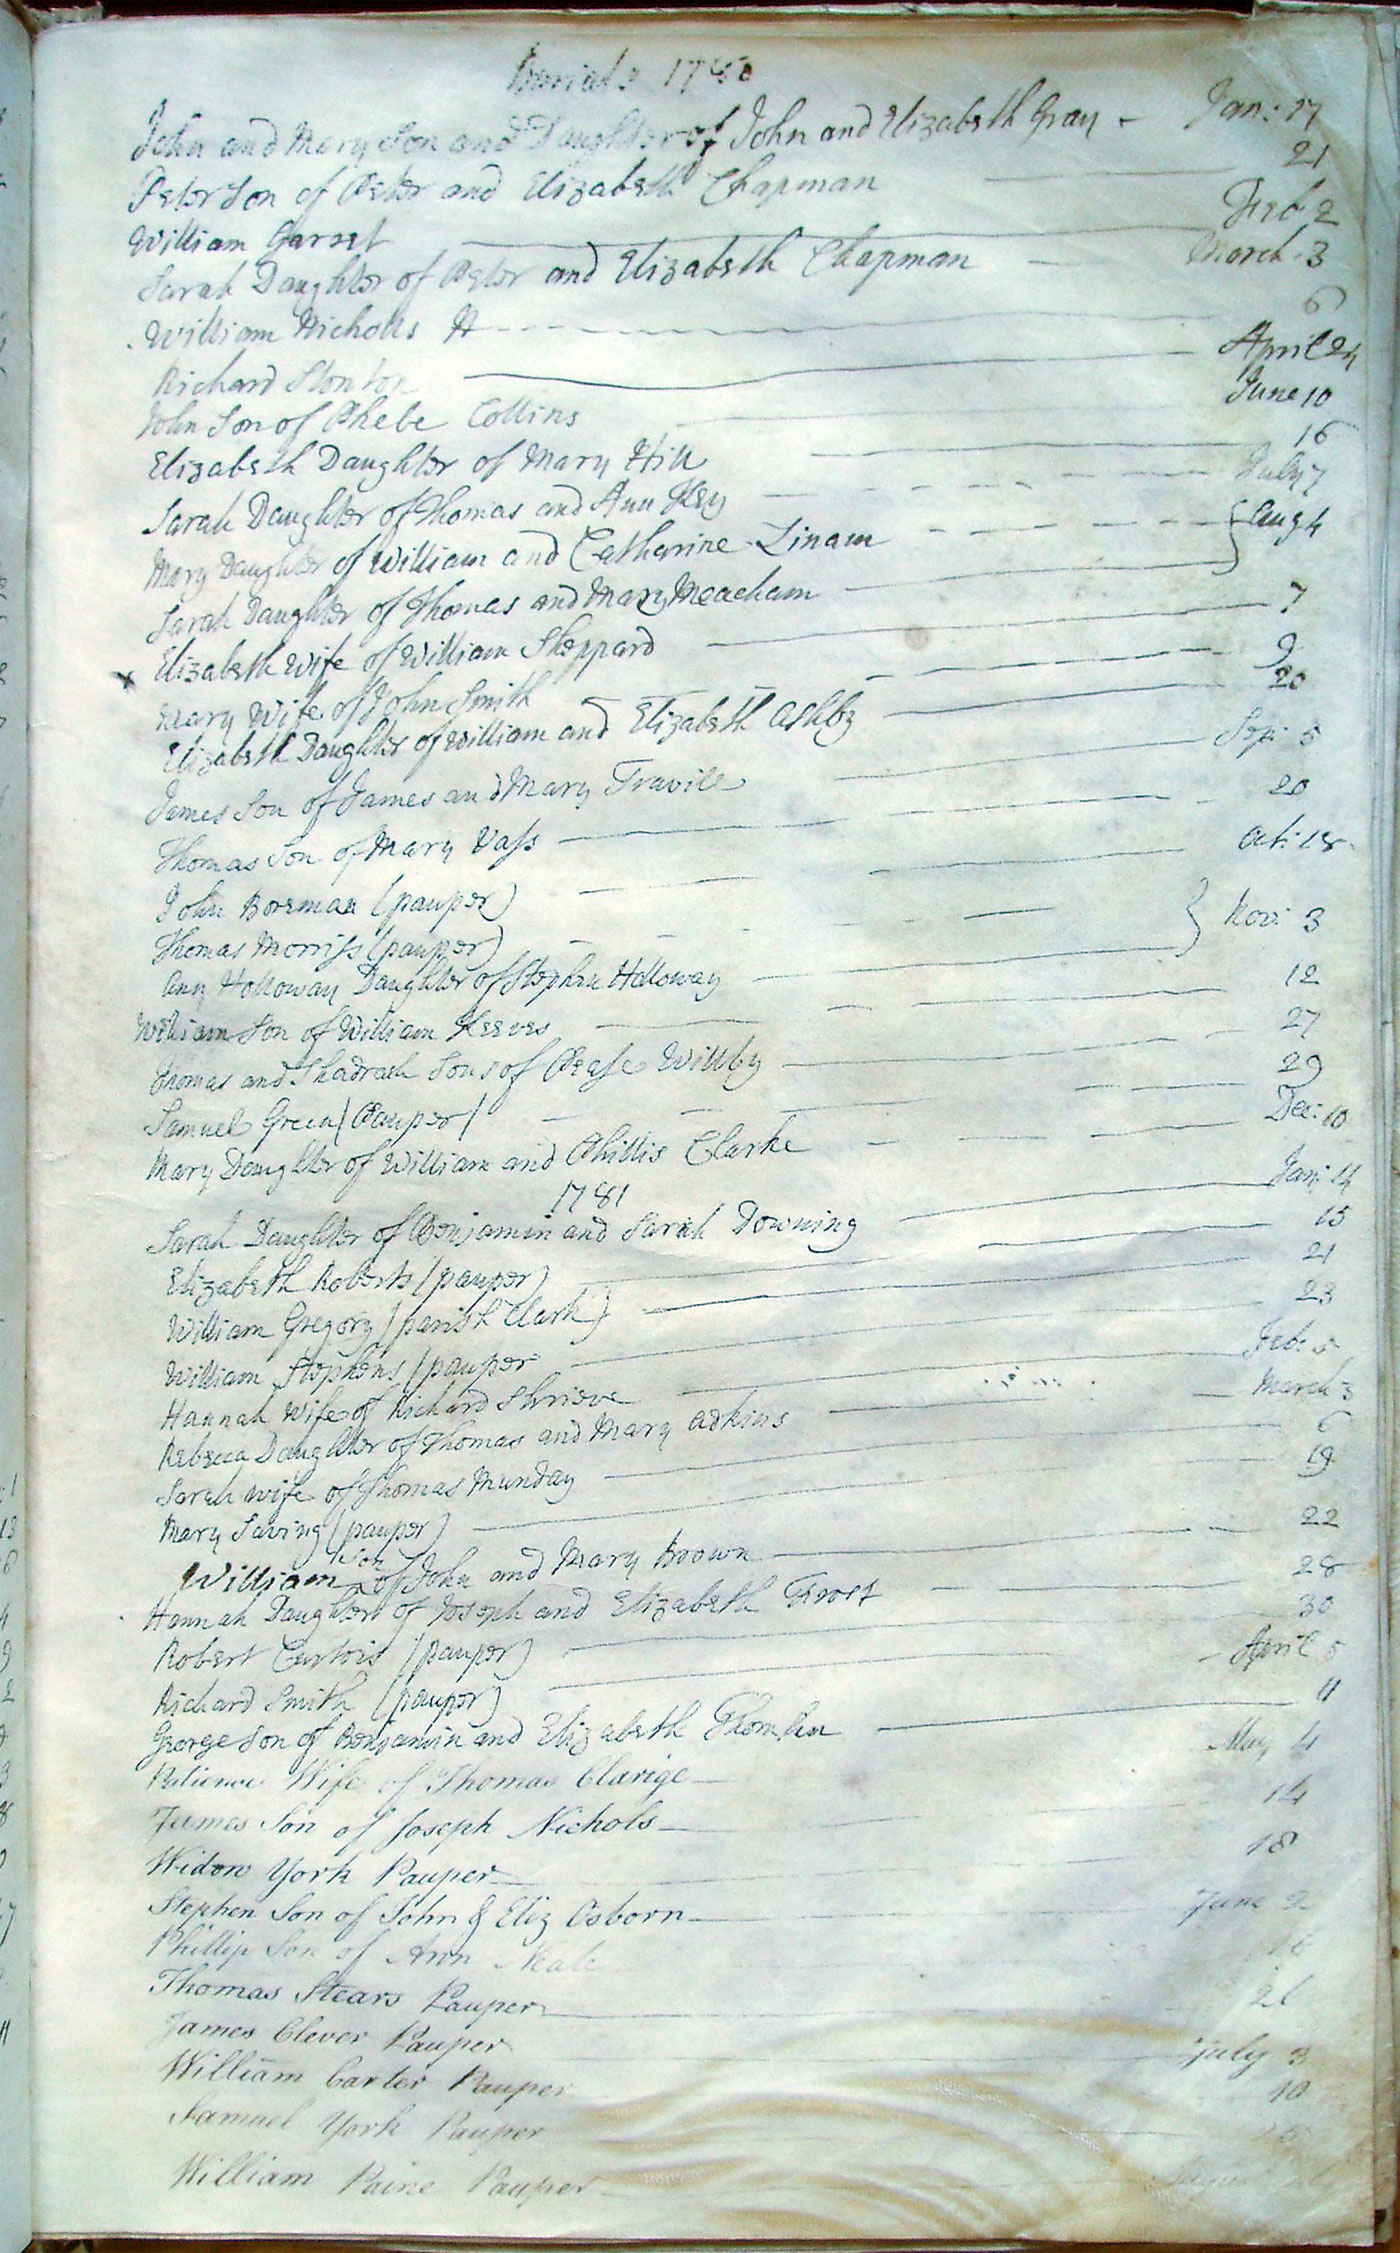 Burials 1780
John and Mary Son and Daughter of John and Elizabeth Gray - Jan: 17
Peter Son of Peter and Elizabeth Chapman 21
William Garret Feb 2
Sarah Daughter of Peter and Elizabeth Chapman March 3
William Nicholls 6
Richard April 24
John Son of Phebe Collins June 10
Elizabeth Daughter of Mary Hill 16
Sarah Daughter of Thomas and Ann Key July 7
Mary Daughter of William and Catharine Linam Aug 4
Sarah Daughter of Thomas and Mary Meacham
Elizabeth Wife of William Sheppard 7
x Mary Wife of John Smith 9
Elizabeth Daughter of William and Elizabeth Ashby 20
James Son of James and Mary Sep: 5
Thomas Son of Mary Vass 20
John Boreman (pauper) Oct: 18
Thomas Morriss (pauper) Nov: 3
Ann Holloway Daughter of Stephen Holloway
William Son of William Keeves 12
Thomas and Shadrach Sons of Willby 27
Samuel Green (Pauper) 29
Mary Daughter of William and Phillis Clarke Dec: 10
1781
Sarah Daughter of Benjamin and Sarah Downing Jan: 14
Elizabeth Roberts (pauper) 15
William Gregory (parish Clark) 21
William Stephens (pauper 23
Hannah Wife of Richard Shrieve Feb: 5
Rebecca Daughter of Thomas and Mary Adkins March 3
Sarah wife of Thomas Munday 6
Mary Saving (pauper) 19
William Son of John and Mary Brown 22
Hannah Daughter of Joseph and Elizabeth Frost 28
Robert Curtois (pauper) 30
Richard Smith (pauper) April 5
George Son of Benjamin and Elizabeth 11
Patience Wife of Thomas Clarige May 4
James Son of Joseph Nichols 14
Widow York Pauper 18
Stephen Son of John & Eliz Osborn June 2
Phillip Son of Ann Neale
Thomas Stears Pauper
James Clever Pauper July 3
William Carter Pauper 10
Samuel York Pauper
William Paine Pauper